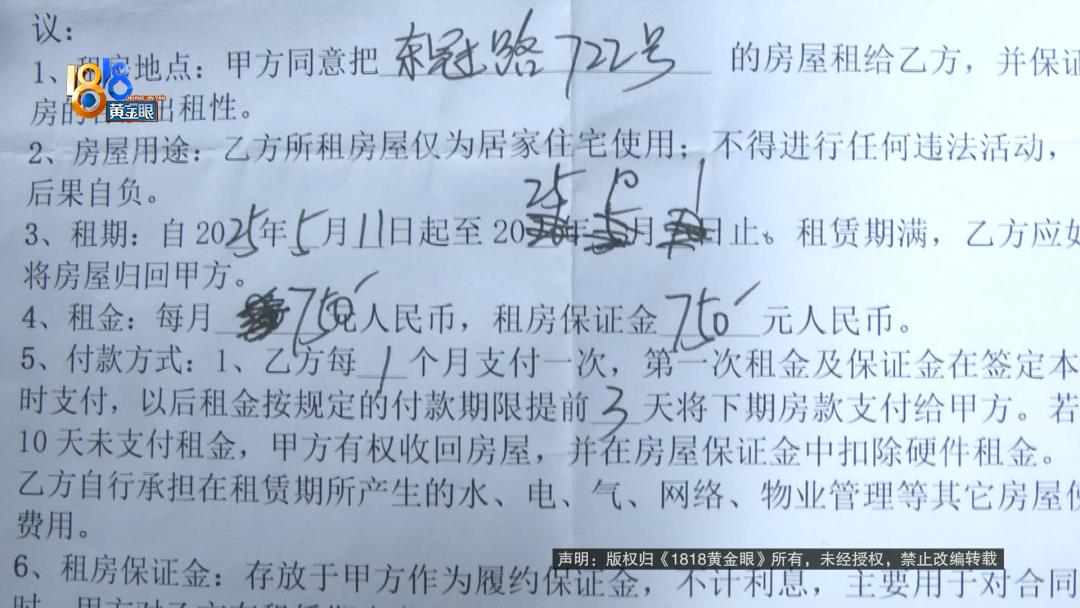 议：
1、租房地点：甲方同意把东冠路722号的房屋租给乙方，并保证
房的 出租性。
2、房屋用途：乙方所租房屋仅为居家住宅使用；不得进行任何违法活动，
后果自负。
25 10 1
3、租期：自2025年5月11日起至20 年 月 日止。租赁期满，乙方应如
将房屋归回甲方。
4、租金：每月750元人民币，租房保证金750元人民币。
5、付款方式：1、乙方每1个月支付一次，第一次租金及保证金在签定本
时支付，以后租金按规定的付款期限提前3天将下期房款支付给甲方。若
10天未支付租金，甲方有权收回房屋，并在房屋保证金中扣除硬件租金。
乙方自行承担在租赁期所产生的水、电、气、网络、物业管理等其它房屋使
费用。
6、租房保证金：存放于甲方作为履约保证金，不计利息，主要用于对合同
1818
黄金眼
声明：版权归《1818黄金眼》所有，未经授权，禁止改编转载